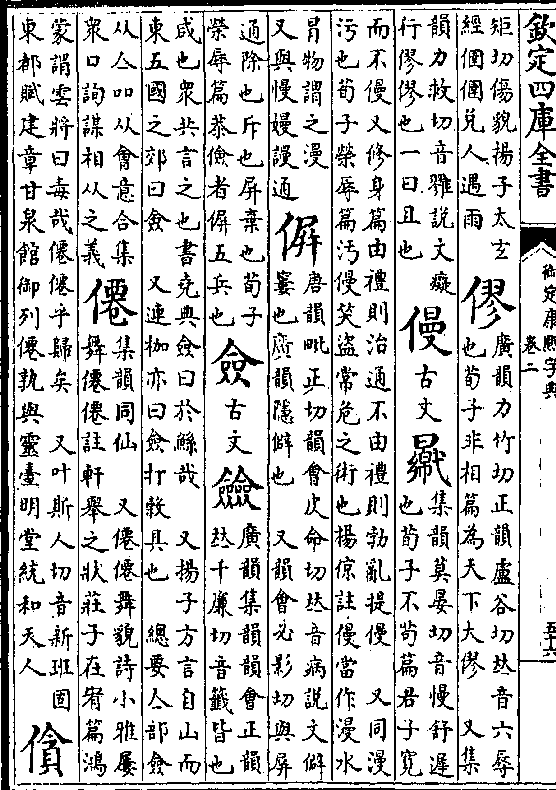 欽定四庫全書
御定康熙字典
卷二
矩切傷貌揚子太玄
經個個兌人遇雨
僇
廣韻力竹切正韻盧谷切𠀤音六辱
也荀子非相篇為天下大僇 又集
韻力救切音說文癡
行僇僇也一曰且也
僈
古文
集韻莫晏切音慢舒遲
也荀子不苟篇君子寬
而不僈又修身篇由禮則治通不由禮則勃亂提僈 又同漫
污也荀子榮辱篇汚僈突盜常危之術也楊倞註僈當作漫水
冒物謂之漫
又與慢嫚謾通
偋
唐韻毗正切韻會皮命切𠀤音病說文僻
窶也廣韻隱僻也 又韻會必影切與屏
通除也斥也屏棄也荀子
榮辱篇恭儉者偋五兵也
僉
古文
廣韻集韻韻會正韻
𠀤千廉切音籤皆也
咸也衆共言之也書堯典僉曰於鯀哉 又揚子方言自山而
東五國之郊曰僉 又連枷亦曰僉打穀具也 總要亼部僉
从亼吅从會意合集
衆口詢謀相从之義
僊
集韻同仙 又僊僊舞貌詩小雅屢
舞僊僊註軒舉之狀莊子在宥篇鴻
蒙謂雲將曰毒哉僊僊乎歸矣 又叶斯人切音新班固
東都賦建章甘泉館御列僊孰與靈臺明堂統和天人